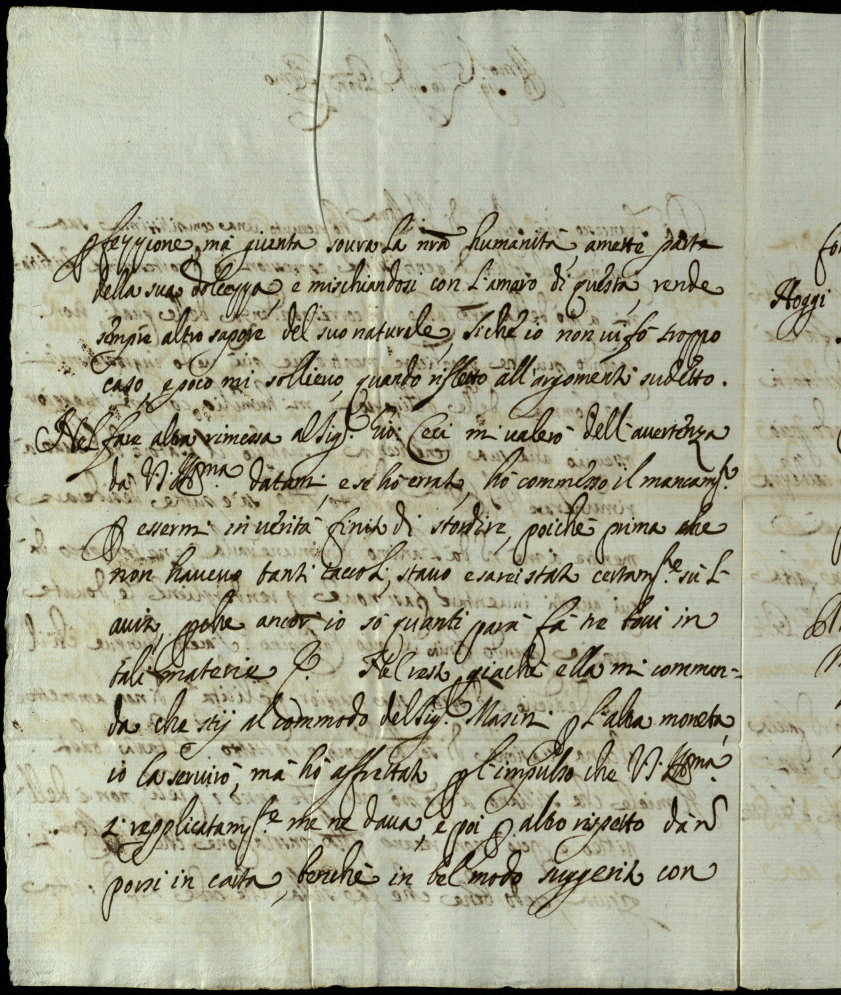 pfezzione, mà giunta soura la nrã humanità, amette parte
della sua dolcezza, e mischiandosi con l'amaro di questa, rende
sempre altro sapore del suo naturale, sichè io non vi fò troppo
caso, e poco mi sollievo, quando rifletto all'argomento sudetto.
Nel fare altra rimessa al Sig.r Ceci mi valerò dell'auertenza
dà V.S. Ill.ma datami, e se hò errato, hò commesso il mancam.to
p essermi in verità finito di stordire, poichè prima che
non haueuo tanti caccoli, stauo e sarei stato certam.te sù l'
auiso, pche ancor io sò quanti para fà tre boui in
tali materie Del resto, giachè ella mi comman-
da che stij al commodo del Sig.r Masini p l'altra moneta,
io la seruirò, mà hò affrettato p l'impulso che V.S. Ill.ma
sì repplicatam.te me ne daua, e poi p altro rispetto dà nõ
porsi in carta, benchè in bel modo suggerito con
Hoggi